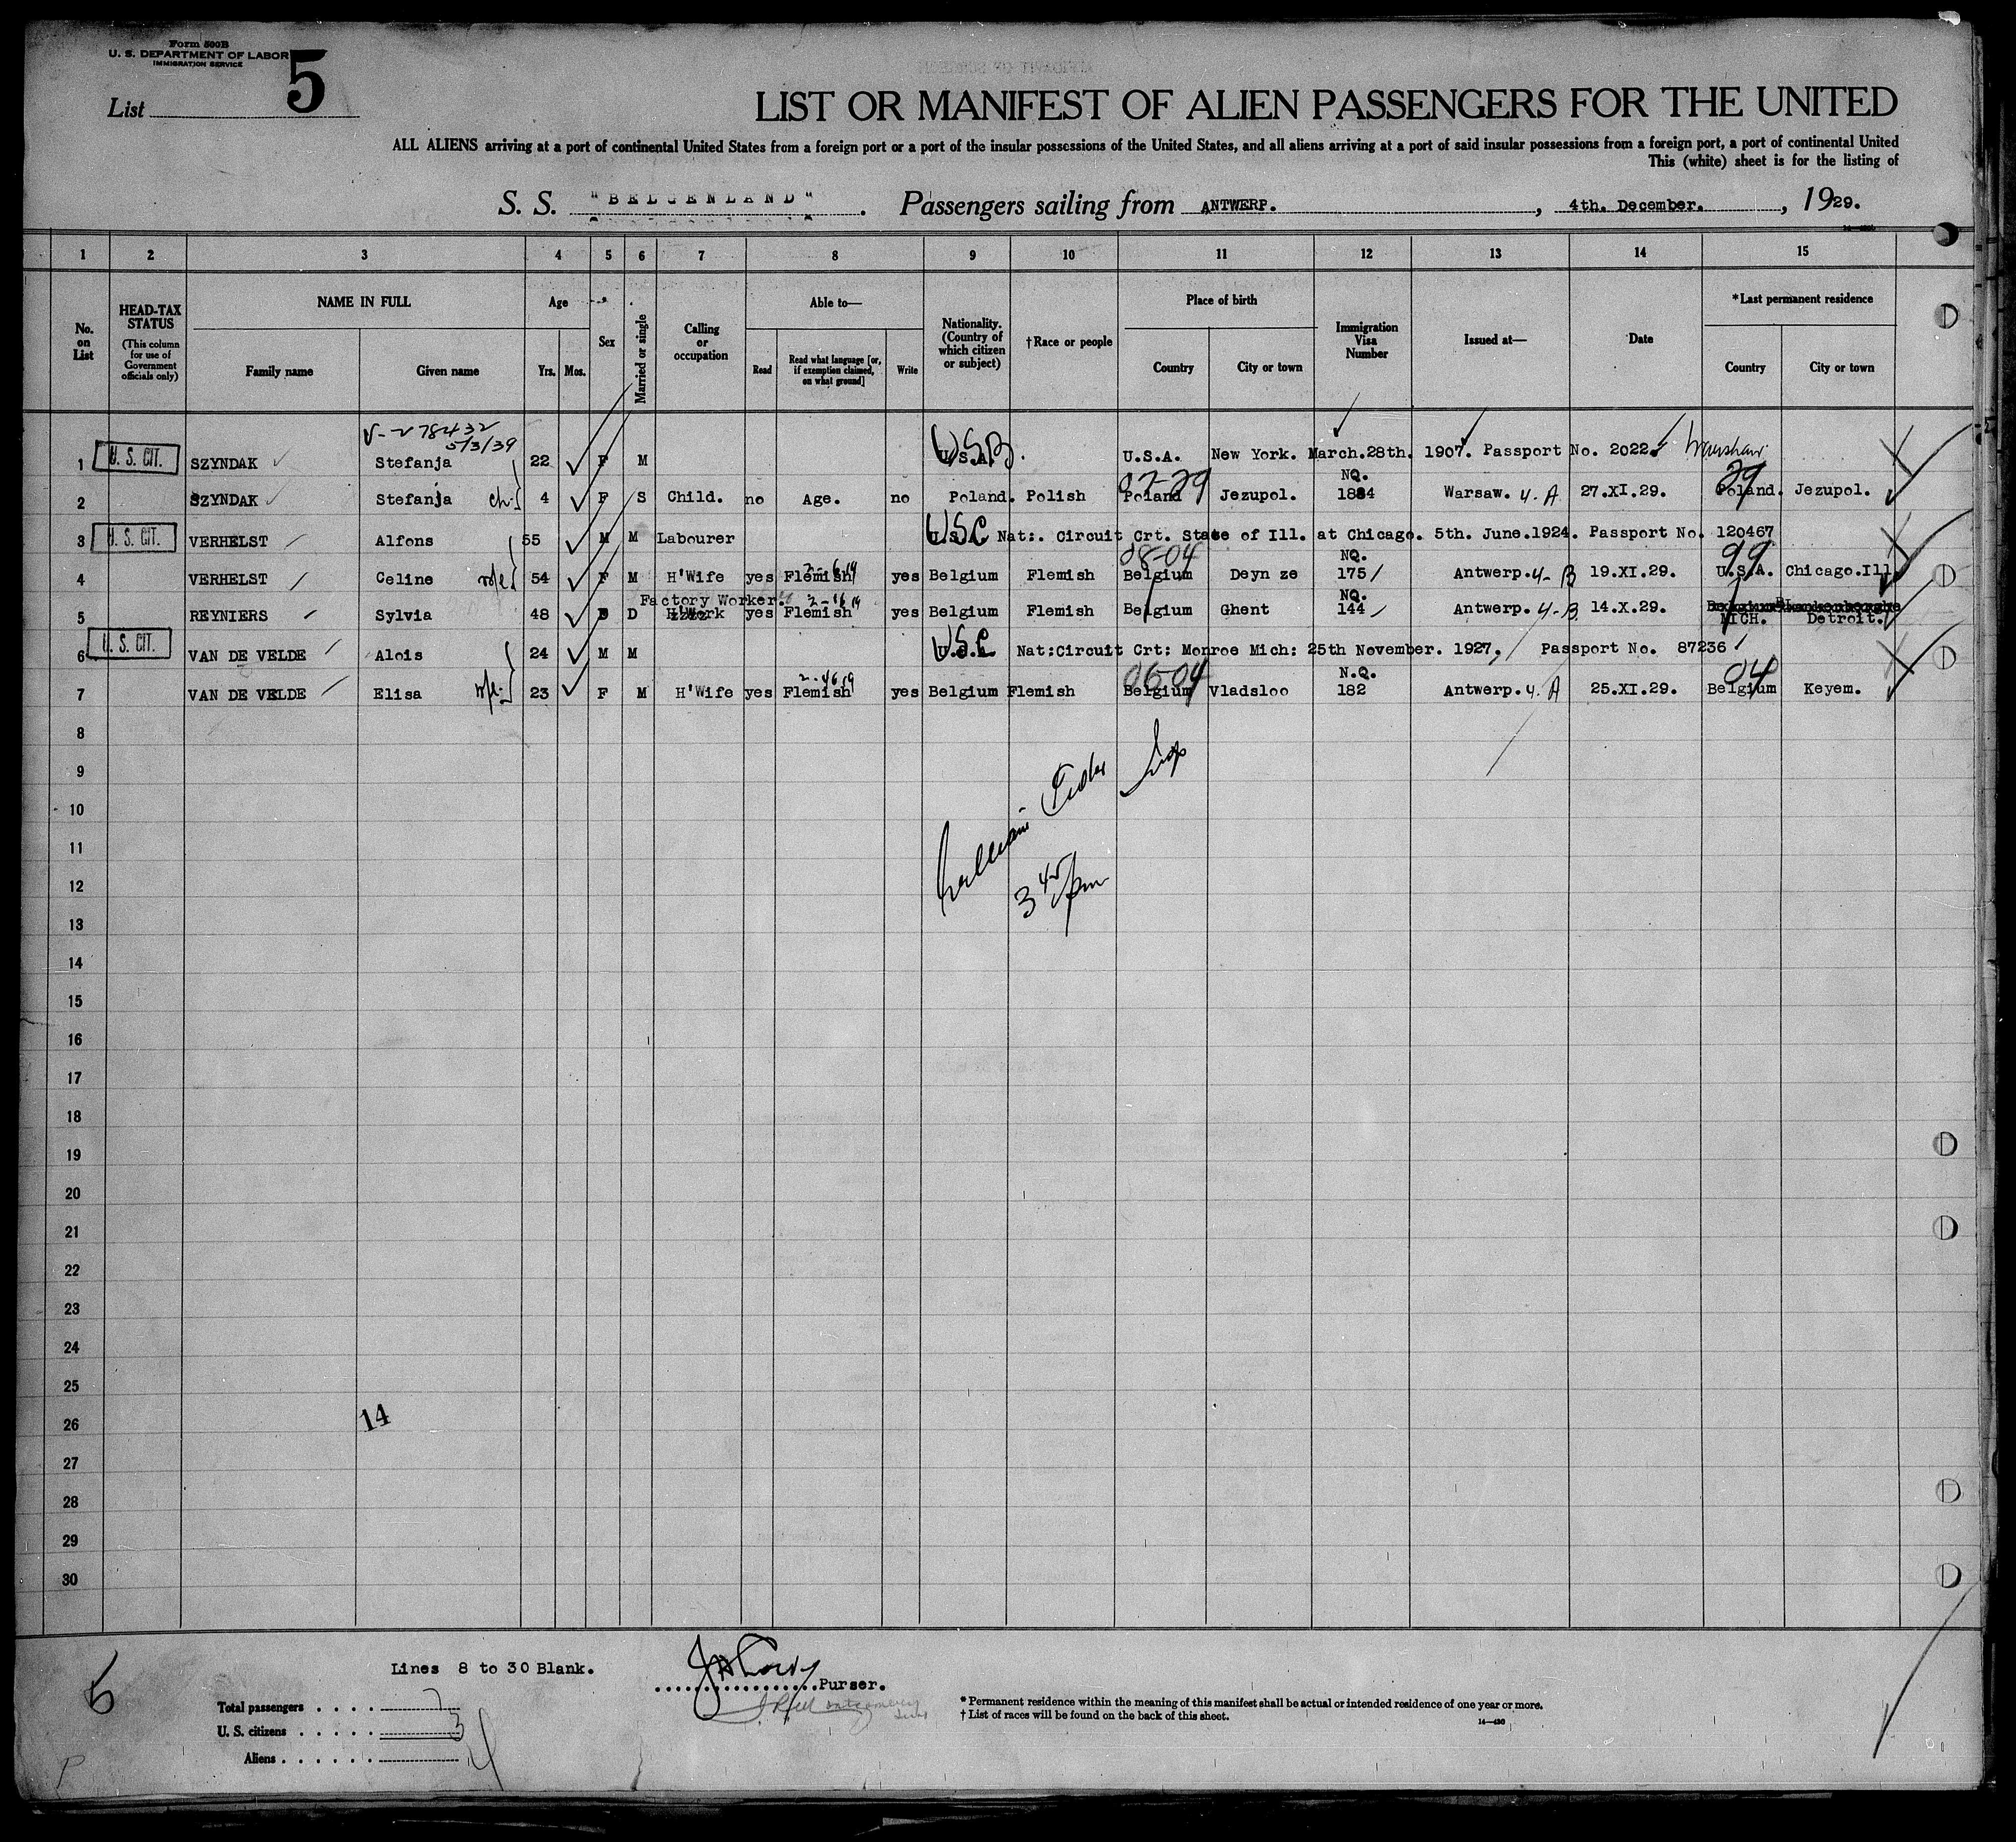 Form 500B
U. S. DEPARTMENT OF LABOR
IMMIGRATION SERVICE
List 5
LIST OR MANIFEST OF ALIEN PASSENGERS FOR THE UNITED
ALL ALIENS arriving at a port of continental United States from a foreign port or a part of the insular possessions of the United States, and all aliens arriving at a port of said insular possessions from a foreign port, a port of continental United
This (white) sheet is for the listing of
S. S. "BELGENLAND". Passengers sailing from ANTWERP. , 4th. December. , 1929.
1 2 3 4 5 6 7 8 9 10 11 12 13 14 15
No. on List
HEAD-TAX STATUS (This column for use of Government officials only)
NAME IN FULL Family name Given name
Age Yrs. Mos.
Sex
Married or single
Calling or occupation
Able to— Read Read what language [or, if exemption claimed, on what ground] Write
Nationality. (Country of which citizen or subject)
†Race or people
Place of birth Country City or town
Immigration Visa Number
Issued at—
Date
*Last permanent residence Country City or town
5/3/39
1 U. S. CIT. SZYNDAK Stefanja 22 F M U.S.A. U.S.A. New York. March.28th. 1907. Passport No. 2022.
NQ.
2 SZYNDAK Stefanja ch. 4 F S Child. no Age. no Poland. Polish Poland 07-29 Jezupol. 1884 Warsaw. 4. A 27.XI.29. Poland. 29 Jezupol.
3 U. S. CIT. VERHELST Alfons 55 M M Labourer USC Nat:. Circuit Crt. State of Ill. at Chicago. 5th. June.1924. Passport No. 120467
08-04 NQ. 99
4 VERHELST Celine wife 54 F M H'Wife yes Flemish yes Belgium Flemish Belgium Deyn ze 175 Antwerp. 4-B 19.XI.29. U.S.A. Chicago.Ill.
Factory Worker. NQ.
5 REYNIERS Sylvia 48 D H'Work yes Flemish yes Belgium Flemish Belgium Ghent 144 Antwerp. 4-B 14.X.29. MICH. Detroit.
6 U. S. CIT. VAN DE VELDE Alois 24 M M USC Nat:Circuit Crt: Monroe Mich: 25th November. 1927. Passport No. 87236
06-04 N.Q. 04
7 VAN DE VELDE Elisa wife 23 F M H'Wife yes Flemish yes Belgium Flemish Belgium Vladsloo 182 Antwerp. 4. A 25.XI.29. Belgium Keyem.
8
9
10
11
12
3 45 pm
13
14
15
16
17
18
19
20
21
22
23
24
25
26
14
27
28
29
30
Lines 8 to 30 Blank.
Purser.
5
Total passengers . . . . 7
U. S. citizens . . . . . 3
Aliens . . . . . . 4
* Permanent residence within the meaning of this manifest shall be actual or intended residence of one year or more.
† List of races will be found on the back of this sheet.
14—430
P